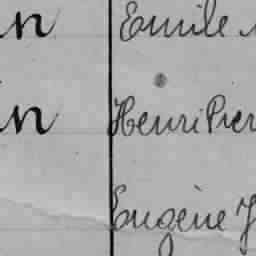 in Emile
in Henri Pier
Eugène J